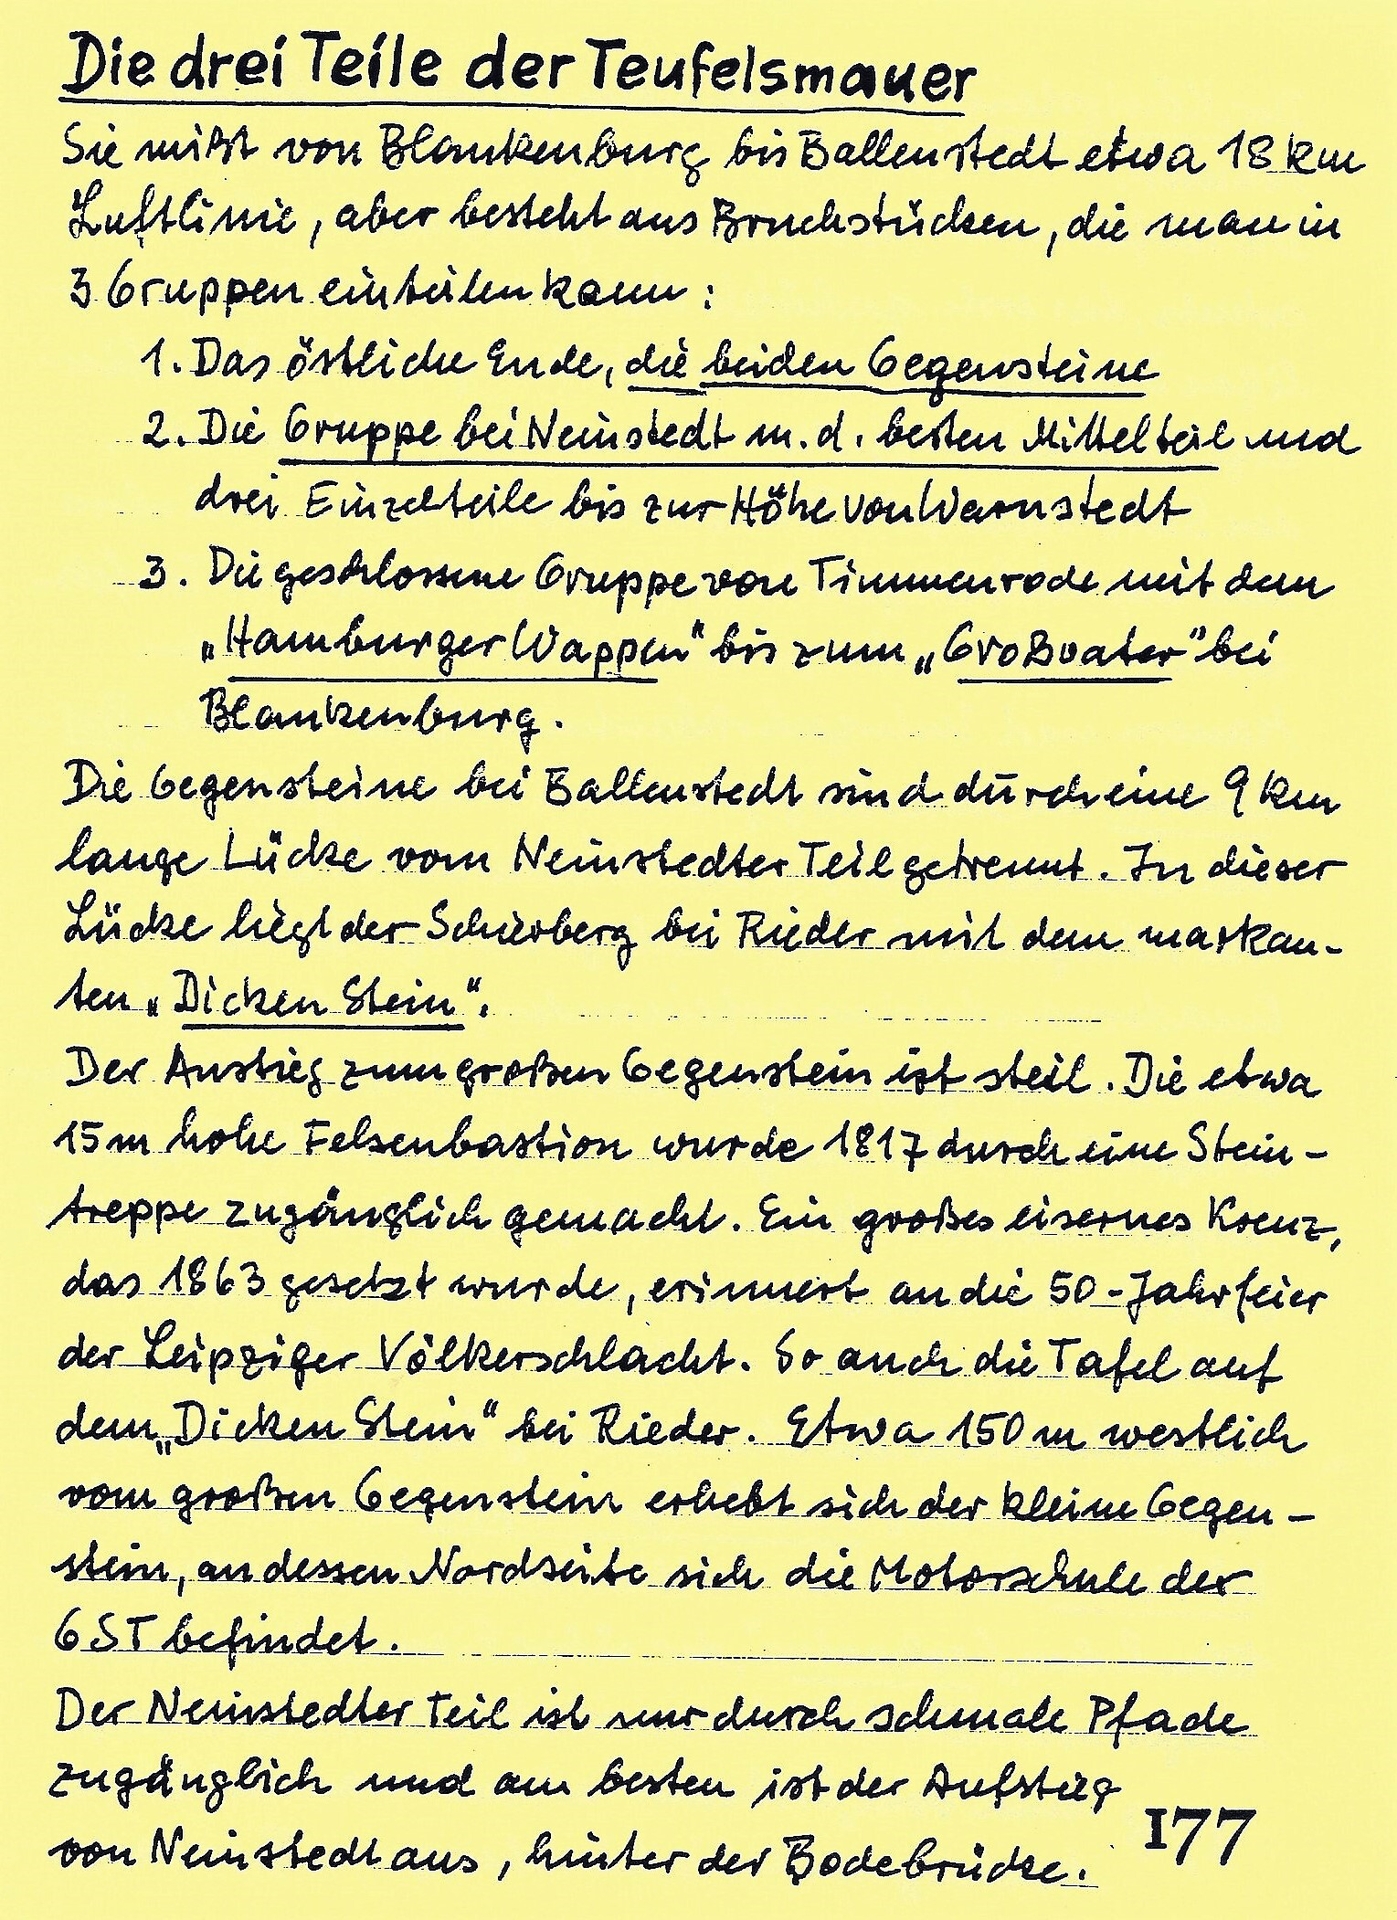 Die drei Teile der Teufelsmauer
Sie mißt von Blankenburg bis Ballenstedt etwa 18 km
Luftlinie, aber besteht aus Bruchstücken, die man in
3 Gruppen einteilen kann:
1. Das östliche Ende, die beiden Gegensteine
2. Die Gruppe bei Neinstedt m. d. besten Mittelteil und
drei Einzelteile bis zur Höhe von Warnstedt
3. Die geschlossene Gruppe von Timmenrode mit dem
„Hamburger Wappen“ bis zum „Großvater“ bei
Blankenburg.
Die Gegensteine bei Ballenstedt sind durch eine 9 km
lange Lücke vom Neinstedter Teil getrennt. In dieser
Lücke liegt der Schierberg bei Rieder mit dem markan-
ten „Dicken Stein“.
Der Anstieg zum großen Gegenstein ist steil. Die etwa
15 m hohe Felsenbastion wurde 1817 durch eine Stein-
treppe zugänglich gemacht. Ein großes eisernes Kreuz,
das 1863 gesetzt wurde, erinnert an die 50-Jahrfeier
der Leipziger Völkerschlacht. So auch die Tafel auf
dem „Dicken Stein“ bei Rieder. Etwa 150 m westlich
vom großen Gegenstein erhebt sich der kleine Gegen-
stein, an dessen Nordseite sich die Motorschule der
GST befindet.
Der Neinstedter Teil ist nur durch schmale Pfade
zugänglich und am besten ist der Aufstieg
von Neinstedt aus, hinter der Bodebrücke.
177